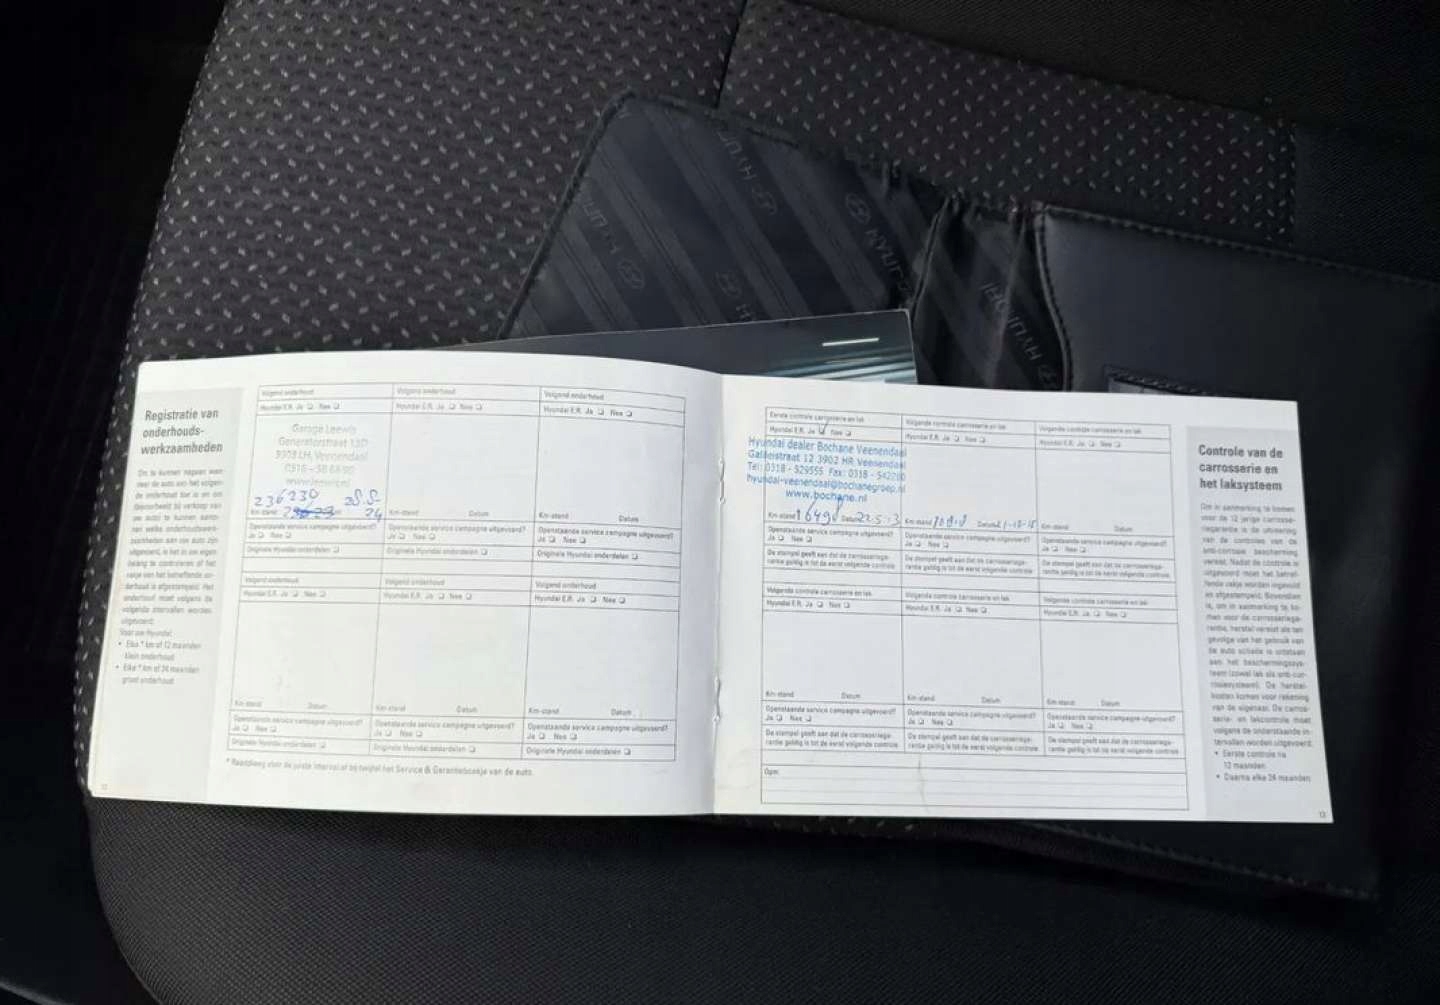 Registratie van
onderhouds-
werkzaamheden
Om te kunnen nagaan wan-
neer de auto aan het volgen-
de onderhoud toe is en om
uitgevoerd:
Voor uw Hyundai:
• Elke * km of 12 maanden
klein onderhoud
• Elke * km of 24 maanden
groot onderhoud
12
Volgend onderhoud
Hyundai E.R. Ja ❏ Nee ❏
Garage Leewis
Generatorstraat 13D
3903 LH, Veenendaal
www.leewis.nl
236230
Km-stand
Openstaande service campagne uitgevoerd?
Ja ❏ Nee ❏
Originele Hyundai onderdelen ❏
Volgend onderhoud
Hyundai E.R. Ja ❏ Nee ❏
Km-stand Datum
Openstaande service campagne uitgevoerd?
Ja ❏ Nee ❏
Originele Hyundai onderdelen ❏
Volgend onderhoud
Hyundai E.R. Ja ❏ Nee ❏
Km-stand Datum
Openstaande service campagne uitgevoerd?
Ja ❏ Nee ❏
Originele Hyundai onderdelen ❏
Volgend onderhoud
Hyundai E.R. Ja ❏ Nee ❏
Km-stand Datum
Openstaande service campagne uitgevoerd?
Ja ❏ Nee ❏
Originele Hyundai onderdelen ❏
Volgend onderhoud
Hyundai E.R. Ja ❏ Nee ❏
Km-stand Datum
Openstaande service campagne uitgevoerd?
Ja ❏ Nee ❏
Originele Hyundai onderdelen ❏
Volgend onderhoud
Hyundai E.R. Ja ❏ Nee ❏
Km-stand Datum
Openstaande service campagne uitgevoerd?
Ja ❏ Nee ❏
Originele Hyundai onderdelen ❏
* Raadpleeg voor de juiste interval of bij twijfel het Service & Garantieboekje van de auto.
Eerste controle carrosserie en lak
Hyundai E.R. Ja ❏ Nee ❏
Hyundai dealer Bochane Veenendaal
Galileistraat 12 3902 HR Veenendaal
Tel: 0318 - 529555 Fax: 0318 - 542210
hyundai-veenendaal@bochanegroep.nl
www.bochane.nl
Km-stand 16498 Datum 22.5.13
Openstaande service campagne uitgevoerd?
Ja ❏ Nee ❏
De stempel geeft aan dat de carrosseriega-
rantie geldig is tot de eerst volgende controle
Volgende controle carrosserie en lak
Hyundai E.R. Ja ❏ Nee ❏
Km-stand Datum
Openstaande service campagne uitgevoerd?
Ja ❏ Nee ❏
De stempel geeft aan dat de carrosseriega-
rantie geldig is tot de eerst volgende controle
Volgende controle carrosserie en lak
Hyundai E.R. Ja ❏ Nee ❏
Km-stand Datum
Openstaande service campagne uitgevoerd?
Ja ❏ Nee ❏
De stempel geeft aan dat de carrosseriega-
rantie geldig is tot de eerst volgende controle
Volgende controle carrosserie en lak
Hyundai E.R. Ja ❏ Nee ❏
Km-stand Datum
Openstaande service campagne uitgevoerd?
Ja ❏ Nee ❏
De stempel geeft aan dat de carrosseriega-
rantie geldig is tot de eerst volgende controle
Volgende controle carrosserie en lak
Hyundai E.R. Ja ❏ Nee ❏
Km-stand Datum
Openstaande service campagne uitgevoerd?
Ja ❏ Nee ❏
De stempel geeft aan dat de carrosseriega-
rantie geldig is tot de eerst volgende controle
Volgende controle carrosserie en lak
Hyundai E.R. Ja ❏ Nee ❏
Km-stand Datum
Openstaande service campagne uitgevoerd?
Ja ❏ Nee ❏
De stempel geeft aan dat de carrosseriega-
rantie geldig is tot de eerst volgende controle
Opm:
Controle van de
carrosserie en
het laksysteem
Om in aanmerking te komen
voor de 12 jarige carrosse-
riegarantie is de uitvoering
van de controles van de
anti-corrosie bescherming
vereist. Nadat de controle is
uitgevoerd moet het betref-
fende vakje worden ingevuld
en afgestempeld. Bovendien
is, om in aanmerking te ko-
men voor de carrosseriega-
rantie, herstel vereist als ten
gevolge van het gebruik van
de auto schade is ontstaan
aan het beschermingssys-
teem (zowel lak als anti-cor-
rosiesysteem). De herstel-
kosten komen voor rekening
van de eigenaar. De carros-
serie- en lakcontrole moet
volgens de onderstaande in-
tervallen worden uitgevoerd:
• Eerste controle na
12 maanden
• Daarna elke 24 maanden
13
HYUNDAI